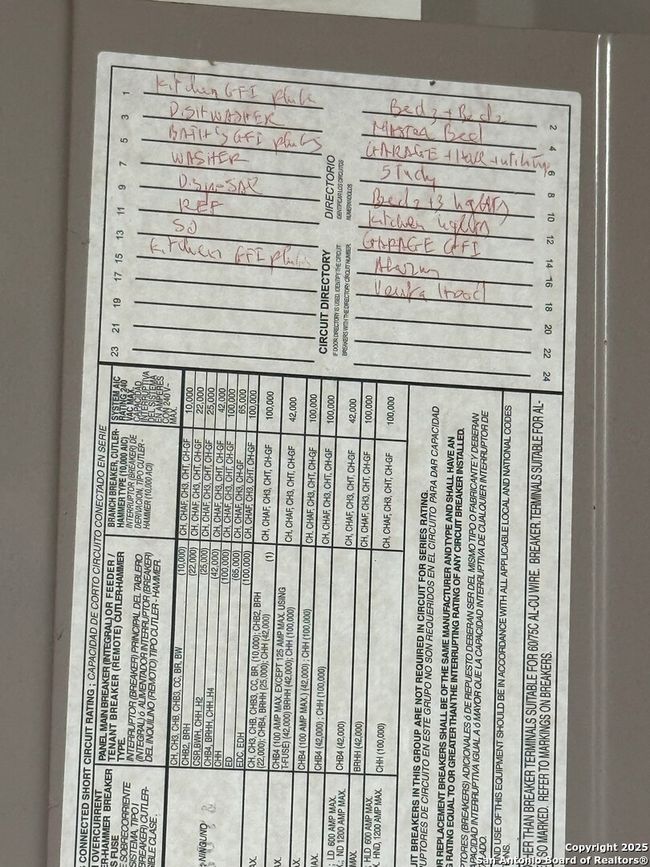 1 Kitchen GFI plugs
3 DISHWASHER
5 BATH'S GFI plugs
7 WASHER
9
11 REF
13 SD
15 Kitchen GFI plugs
17
19
21
23
DIRECTORIO
IDENTIFICAR LOS CIRCUITOS
CIRCUIT DIRECTORY
IF DOOR DIRECTORY IS USED, IDENTIFY THE CIRCUIT
BREAKERS WITH THE DIRECTORY CIRCUIT NUMBER.
Bed 3 + Bed 2 2
MASTER Bed 4
GARAGE + Hall + utility 6
Study 8
Bed 2 + 3 lights 10
Kitchen lights 12
GARAGE GFI 14
Alarm 16
Hood 18
20
22
24
CONNECTED SHORT CIRCUIT RATING ; CAPACIDAD DE CORTO CIRCUITO CONECTADO EN SERIE
PANEL MAIN BREAKER (INTEGRAL) OR FEEDER /
TENANT BREAKER (REMOTE) CUTLER-HAMMER
TYPE.
INTERRUPTOR (BREAKER) PRINCIPAL DEL TABLERO
(INTEGRAL) ó ALIMENTADOR INTERRUPTOR (BREAKER)
DEL INQUILINO (REMOTO) TIPO CUTLER - HAMMER.
BRANCH BREAKER, CUTLER-
HAMMER TYPE (10,000 AIC)
INTERRUPTOR (BREAKER) DE
DERIVACION, TIPO CUTLER -
HAMMER (10,000 AIC)
SYSTEM AIC
RATING 240
VAC MAX.
CAPACIDAD
INTERRUPTIVA
DE SISTEMA
EN AMPERES
CON 240 V~
MAX.
CH, CH3, CHB, CHB3, CC, BR, BW
CHB2, BRH (10,000) CH, CHAF, CH3, CHT, CH-GF 10,000
CSR, BWH, CHH, H2 (22,000) CH, CHAF, CH3, CHT, CH-GF 22,000
CHB4, BRHH, CHH, H4 (25,000) CH, CHAF, CH3, CHT, CH-GF 25,000
CHH (42,000) CH, CHAF, CH3, CHT, CH-GF 42,000
ED (100,000) CH, CHAF, CH3, CHT, CH-GF 100,000
EDC, EDH (65,000) CH, CHAF, CH3, CH-GF 65,000
(100,000) CH, CHAF, CH3, CHT, CH-GF 100,000
CH, CH3, CHB, CHB3, CC, BR, (10,000); CHB2, BRH
(22,000); CHB4, BRHH (25,000); CHH (42,000) (1) CH, CHAF, CH3, CHT, CH-GF 100,000
CHB4 (100 AMP MAX. EXCEPT 125 AMP MAX. USING
T-FUSE) (42,000) BRHH (42,000); CHH (100,000) CH, CHAF, CH3, CHT, CH-GF 42,000
CHB4 (100 AMP MAX.) (42,000) ; CHH (100,000) CH, CHAF, CH3, CHT, CH-GF 100,000
CHB4 (42,000) ; CHH (100,000) CH, CHAF, CH3, CHT, CH-GF 100,000
CHB4 (42,000) CH, CHAF, CH3, CHT, CH-GF 42,000
BRHH (42,000) CH, CHAF, CH3, CHT, CH-GF 100,000
CHH (100,000) CH, CHAF, CH3, CHT, CH-GF 100,000
UIT BREAKERS IN THIS GROUP ARE NOT REQUIRED IN CIRCUIT FOR SERIES RATING.
UPTORES DE CIRCUITO EN ESTE GRUPO NO SON REQUERIDOS EN EL CIRCUITO PARA DAR CAPACIDAD
R REPLACEMENT BREAKERS SHALL BE OF THE SAME MANUFACTURER AND TYPE AND SHALL HAVE AN
RATING EQUAL TO OR GREATER THAN THE INTERRUPTING RATING OF ANY CIRCUIT BREAKER INSTALLED.
TORES (BREAKERS) ADICIONALES ó DE REPUESTO DEBERAN SER DEL MISMO TIPO O FABRICANTE Y DEBERAN
CAPACIDAD INTERRUPTIVA IGUAL A ó MAYOR QUE LA CAPACIDAD INTERRUPTIVA DE CUALQUIER INTERRUPTOR DE
AND USE OF THIS EQUIPMENT SHOULD BE IN ACCORDANCE WITH ALL APPLICABLE LOCAL AND NATIONAL CODES
HER THAN BREAKER TERMINALS SUITABLE FOR 60/75C AL-CU WIRE. BREAKER TERMINALS SUITABLE FOR AL-
SO MARKED. REFER TO MARKINGS ON BREAKERS.
Copyright 2025
San Antonio Board of Realtors®